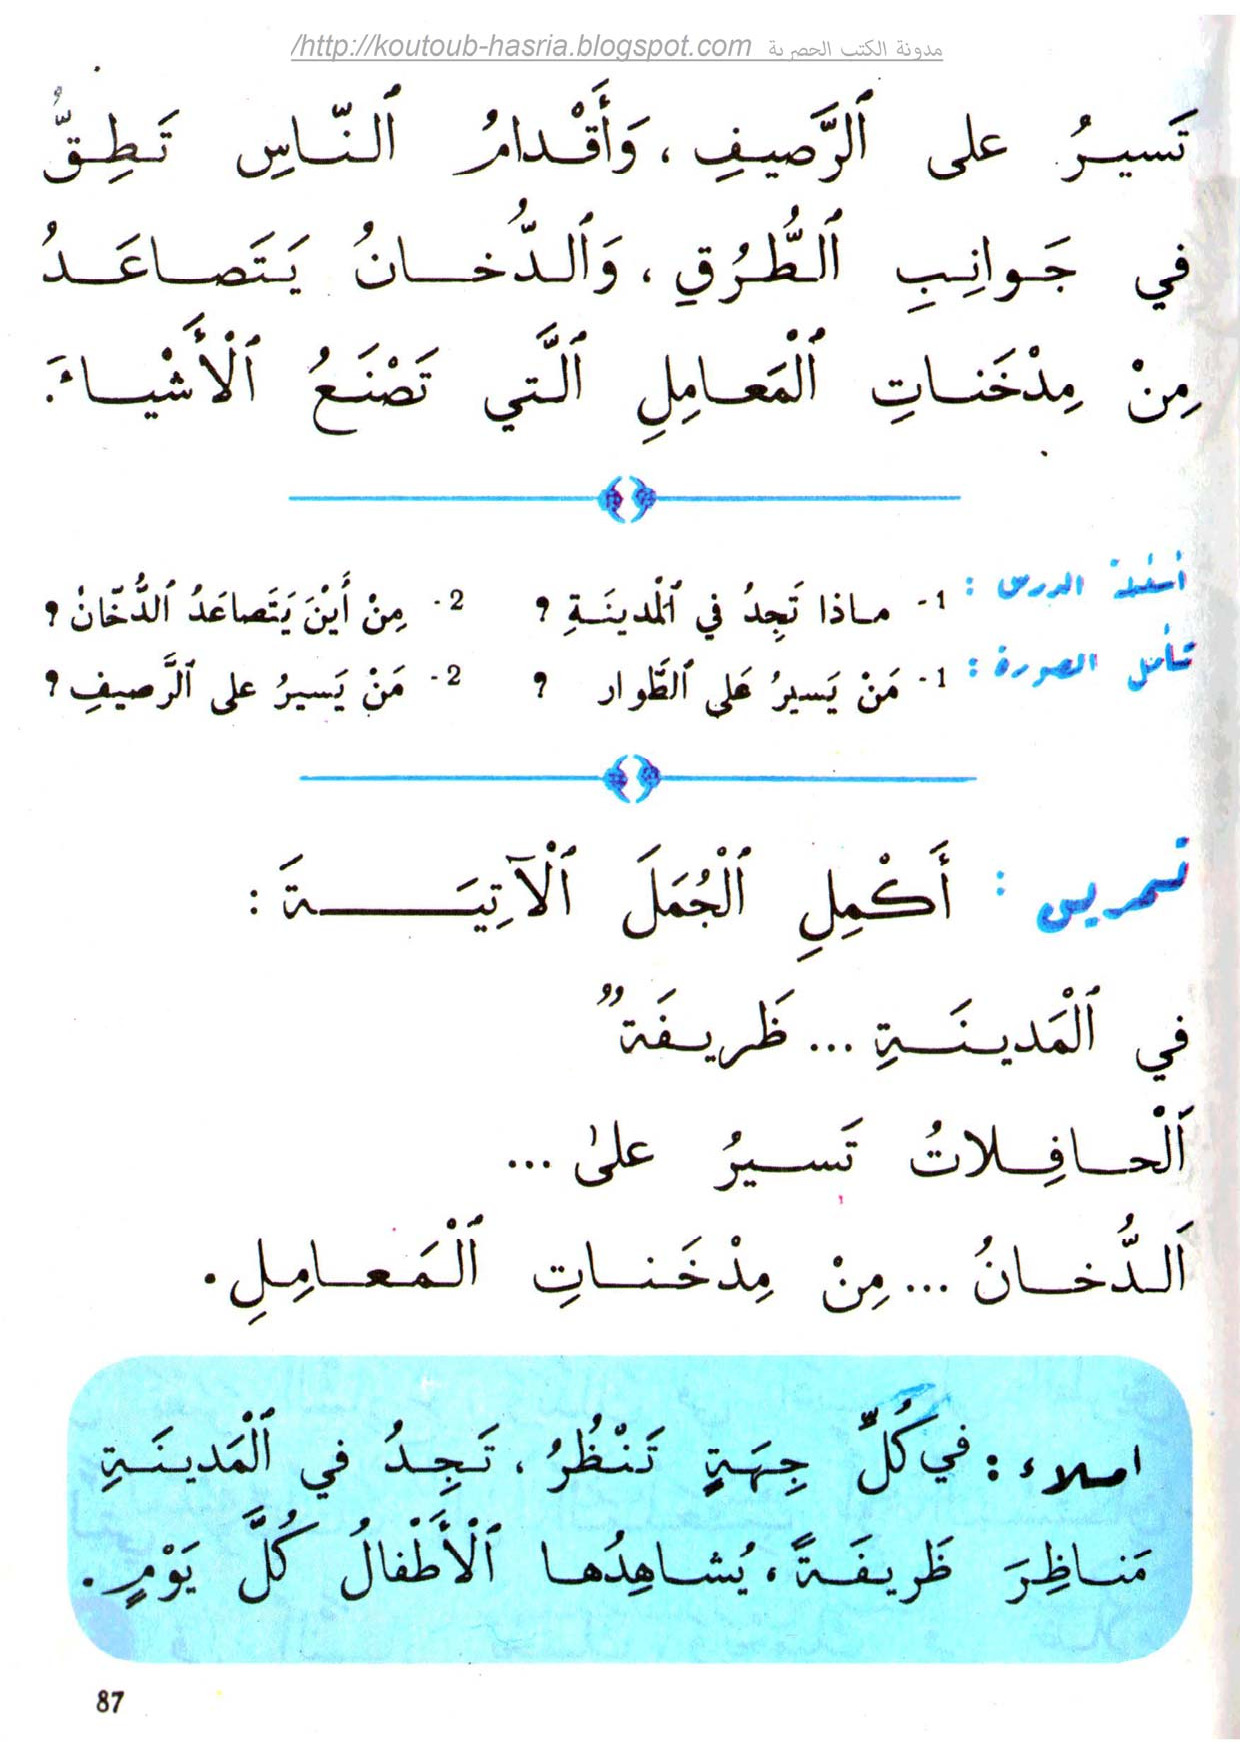 مدونة الكتب الحصرية http://koutoub-hasria.blogspot.com/
تَسيرُ على ٱلرَّصيفِ، وَأَقْدامُ ٱلنّاسِ تَطِقُّ
في جَوانِبِ ٱلطُّرُقِ، وَٱلدُّخانُ يَتَصاعَدُ
مِنْ مِدْخَناتِ ٱلْمَعامِلِ ٱلَّتي تَصْنَعُ ٱلْأَشْياءَ.
أسئلة الدرس : 1- ماذا تَجِدُ في ٱلْمدينَةِ ؟ 2- مِنْ أَيْنَ يَتَصاعَدُ ٱلدُّخّانُ ؟
تأمل الصورة : 1- مَنْ يَسيرُ عَلى ٱلطَّوار ؟ 2- مَنْ يَسيرُ على ٱلرَّصيفِ ؟
تمرين : أَكْمِلِ ٱلْجُمَلَ ٱلْآتِيَةَ :
في ٱلْمَدينَةِ ... ظَريفَةٌ
اَلْحافِلاتُ تَسيرُ علىٰ ...
اَلدُّخانُ ... مِنْ مِدْخَناتِ ٱلْمَعامِلِ.
املاء : في كُلِّ جِهَةٍ تَنْظُرُ، تَجِدُ في ٱلْمَدينَةِ
مَناظِرَ ظَريفَةً، يُشاهِدُها ٱلْأَطْفالُ كُلَّ يَوْمٍ.
87